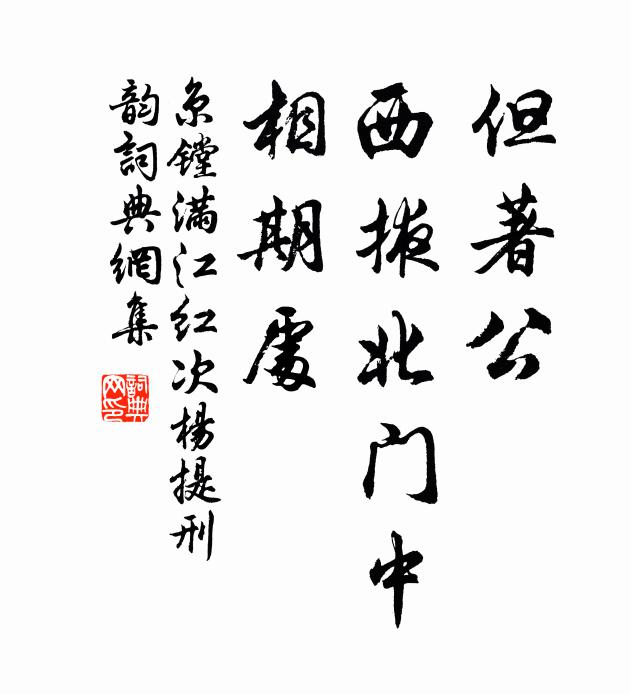 但著公
西掖北门中
相期處
京鏜满江红次楊提刑
韵詞典網集
詞典网印